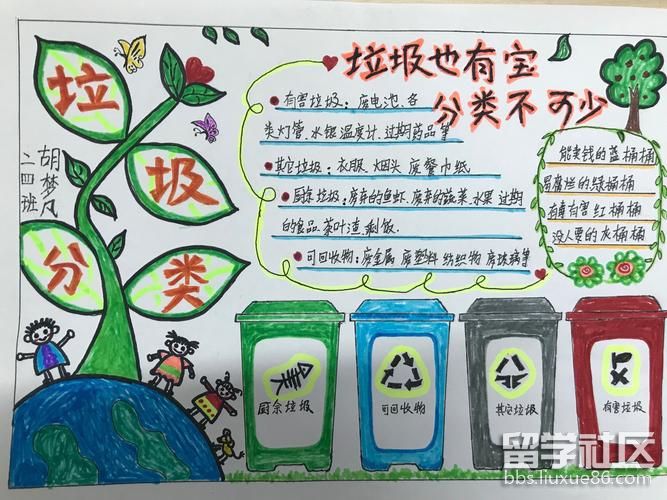 垃圾分类
二四班
胡梦凡
垃圾也有宝
分类不可少
有害垃圾：废电池、各
类灯管、水银温度计、过期药品等
其它垃圾：衣服、烟头、废餐巾纸
厨余垃圾：废弃的鱼虾、废弃的蔬菜、水果、过期
的食品、茶叶渣、剩饭、
可回收物：废金属、废塑料、纺织物、废玻璃等
能卖钱的蓝桶桶
易腐烂的绿桶桶
有毒有害红桶桶
没人要的灰桶桶
厨余垃圾
可回收物
其它垃圾
有害垃圾
留学社区
bbs.liuxue86.com